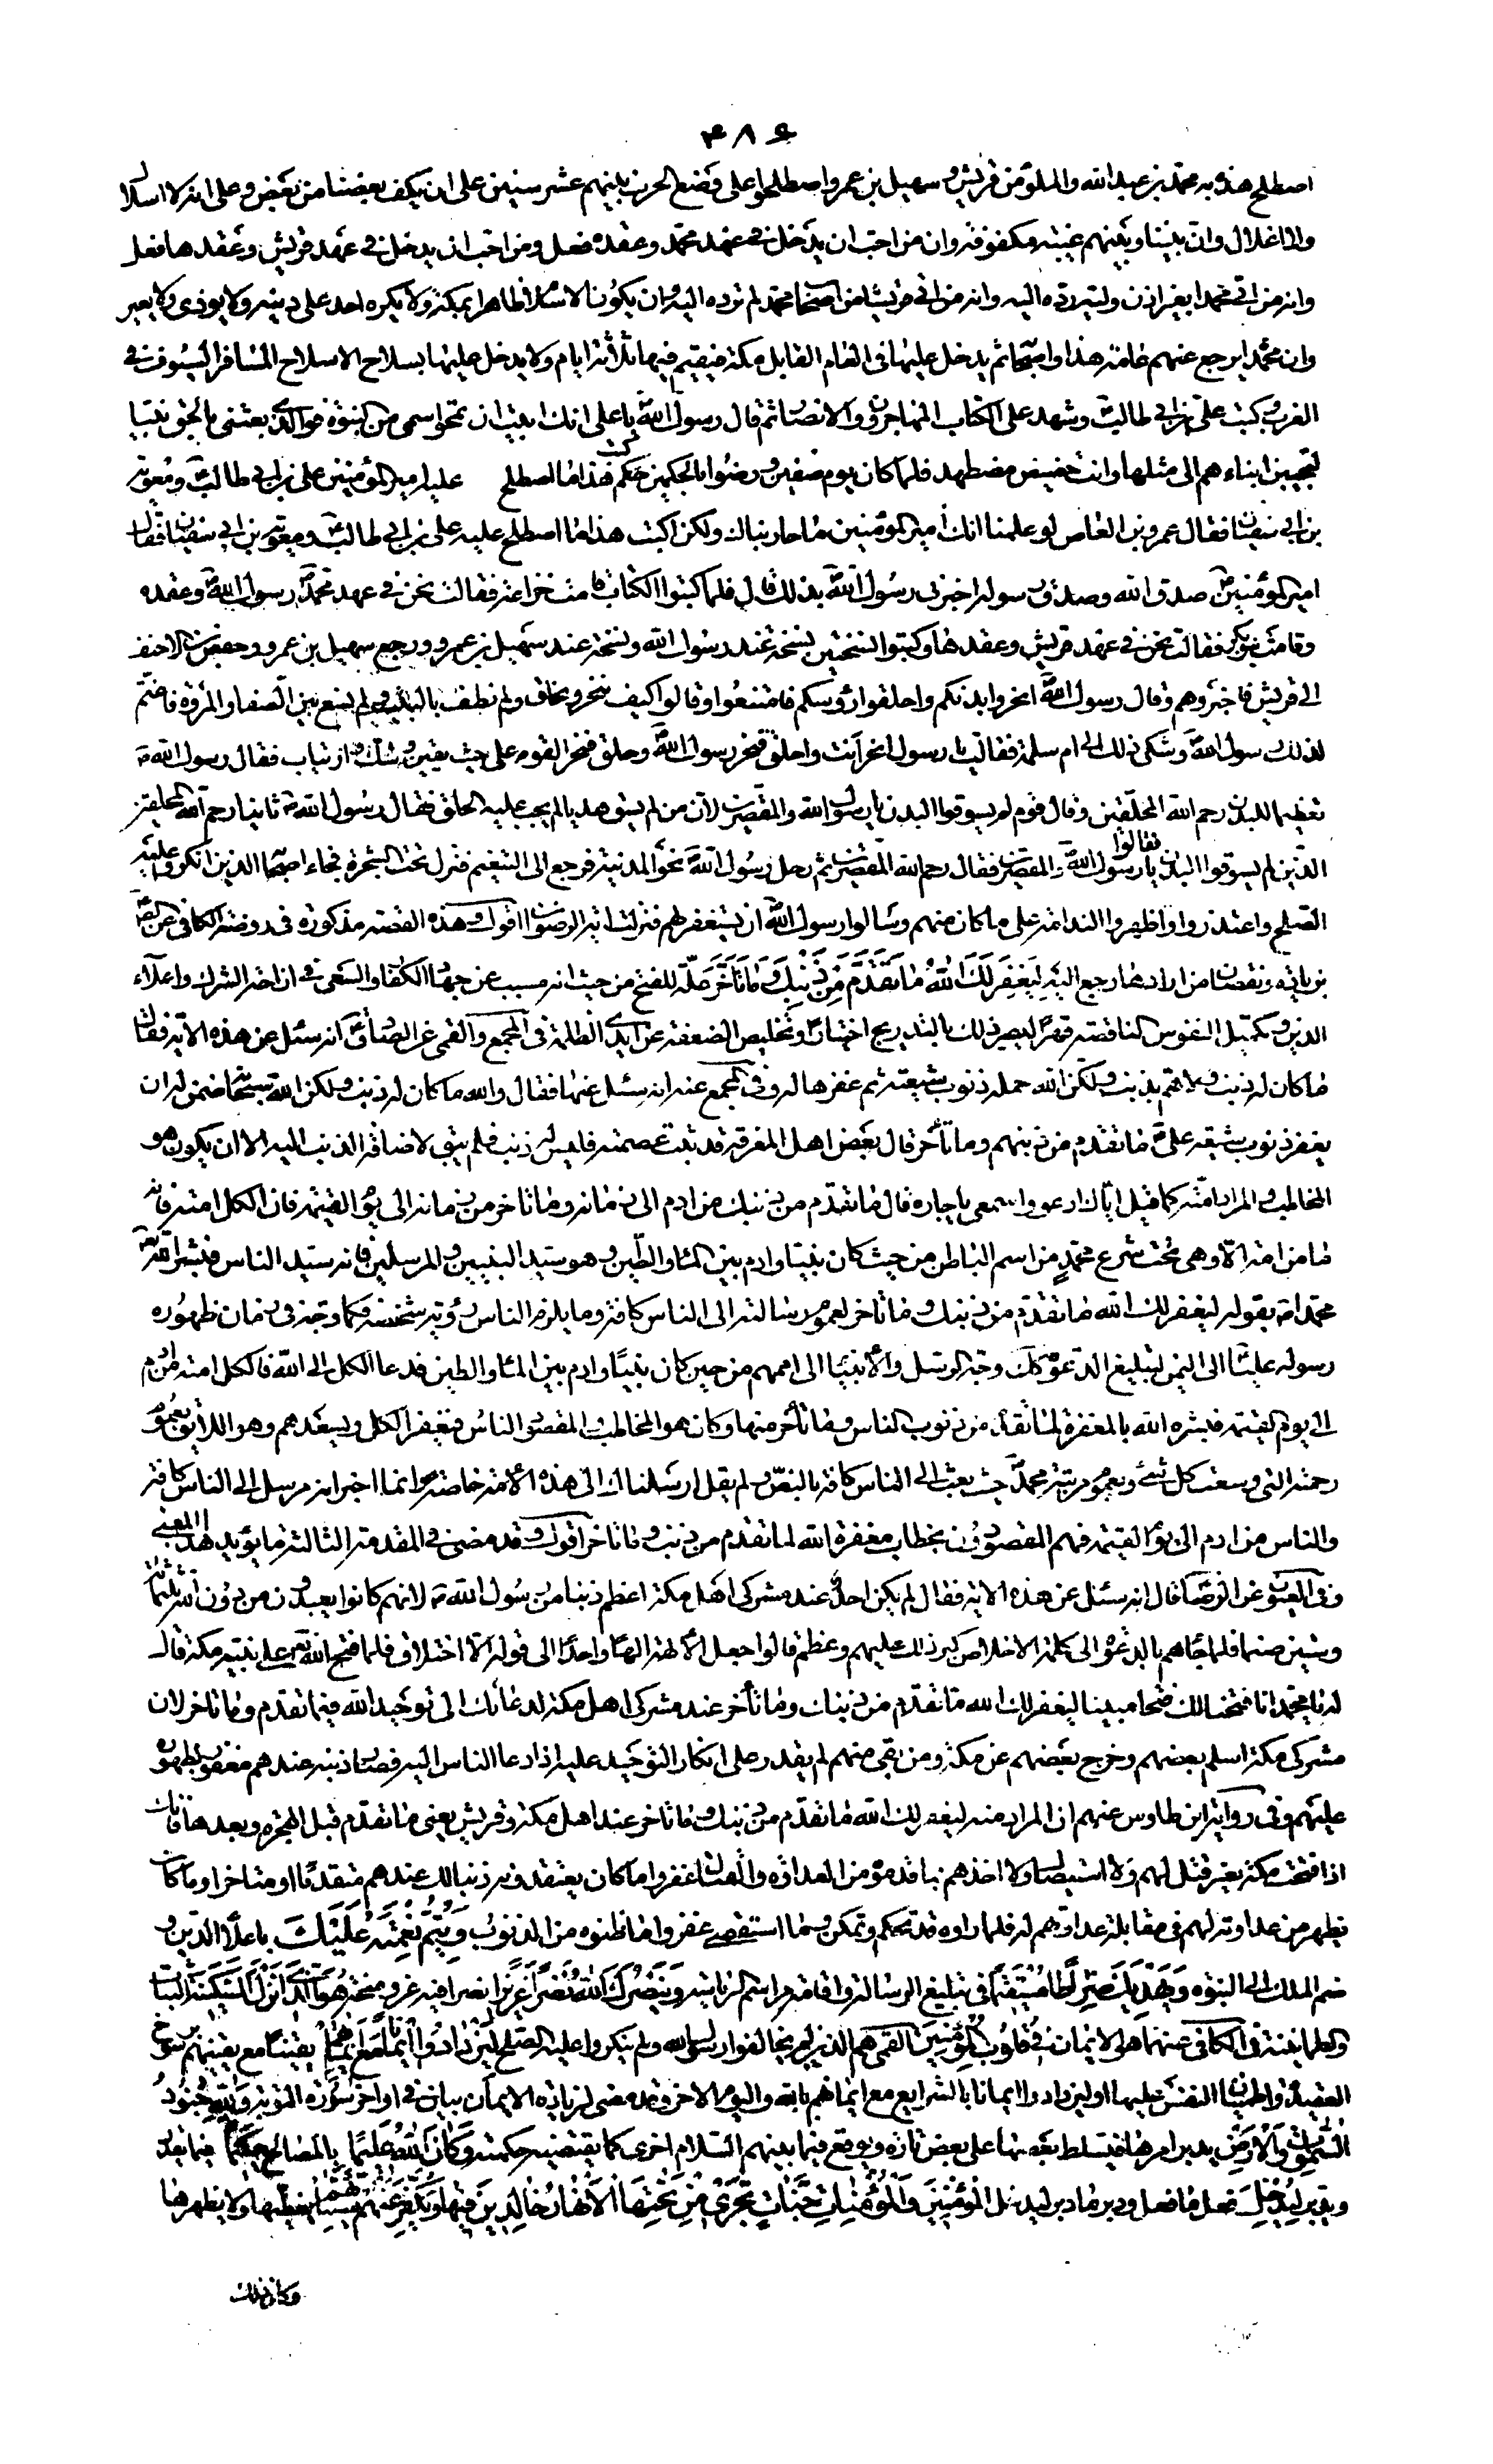 ٤٨۶
اصطلح هذا به محمد بن عبد الله والملؤ من قريش وسهيل بن عمرو اصطلحوا على وضع الحرب بينهم عشر سنين على ان يكف بعضنا من بعض وعلى انه لا اسلال
ولا اغلال وان بيننا وبينهم غيبة مكفوفة وان من احب ان يدخل في عهد محمد وعقده فعل ومن احب ان يدخل في عهد قريش وعقدها فعل
وانه من اتى محمدا بغير اذن وليه رده اليه وانه من اتى قريشا من اصحاب محمد لم ترده اليه وان يكون الاسلام ظاهرا بمكة ولا يكره احد على دينه ولا يوذى ولا يعير
وان محمدا يرجع عنهم عامه هذا واصحابه ثم يدخل علينا في العام القابل مكة فيقيم فيها ثلثة ايام ولا يدخل علينا بسلاح الا سلاح المسافر السيوف في
القرب وكتب علي بن ابي طالب وشهد على الكتاب المهاجرون والانصار ثم قال رسول الله يا علي انك ابيت ان تمحو اسمي من النبوة فوالذي بعثني بالحق نبيا
لتجيبن ابناءهم الى مثلها وانت مضيض مضطهد فلما كان يوم صفين ورضوا بالحكمين كتب هذا ما اصطلح عليه امير المؤمنين علي بن ابي طالب ومعوية
بن ابي سفيان فقال عمرو بن العاص لو علمنا انك امير المؤمنين ما حاربناك ولكن اكتب هذا ما اصطلح عليه علي بن ابي طالب ومعوية بن ابي سفيان فقال
امير المؤمنين صدق الله وصدق رسوله اخبرني رسول الله بذلك قال فلما كتبوا الكتاب قامت خزاعة فقالت نحن في عهد محمد رسول الله وعقده
وقامت بنو بكر فقالت نحن في عهد قريش وعقدها وكتبوا نسختين نسخة عند رسول الله ونسخة عند سهيل بن عمرو ورجع سهيل بن عمرو وحفص بن الاحنف
الى قريش فاخبروهم وقال رسول الله انحروا بدنكم واحلقوا رؤسكم فامتنعوا وقالوا كيف ننحر ونحلق ولم نطف بالبيت ولم نسع بين الصفا والمروة فاغتم
لذلك رسول الله وشكى ذلك الى ام سلمة فقالت يا رسول انحر انت واحلق فنحر رسول الله وحلق فنحر القوم على حيث يقين وشك وارتياب فقال رسول الله ص
تعظيما للبدن رحم الله المحلقين وقال قوم لم يسوقوا البدن يا رسول الله والمقصرين لان من لم يسق هديا لم يجب عليه الحلق فقال رسول الله ص ثانيا رحم الله المحلقين
الذين لم يسوقوا البدن فقالوا يا رسول الله والمقصرين فقال رحم الله المقصرين ثم رحل رسول الله نحو المدينة فرجع الى التنعيم فنزل تحت الشجرة فجاء اصحابه الذين انكروا عليه
الصلح واعتذروا واظهروا الندامة على ما كان منهم وسألوا رسول الله ان يستغفر لهم فنزلت اية الرضوان اقول وهذه القصة مذكورة في روضة الكافي عن الصادق
بزيادة ونقصان من ارادها رجع اليه لِيَغْفِرَ لَكَ اللهُ مَا تَقَدَّمَ مِنْ ذَنْبِكَ وَمَا تَأَخَّرَ علة للفتح من حيث انه مسبب عن جهاد الكفار والسعي في ازاحة الشرك واعلاء
الدين وتكميل النفوس الناقصة قهرا ليصير ذلك بالتدريج اختيارا وتخليص الضعفة عن ايدي الظلمة في المجمع والقمي عن الصادق انه سئل عن هذه الاية فقال
ما كان له ذنب ولا هم بذنب ولكن الله حمله ذنوب شيعته ثم غفرها له وفي المجمع عنه انه سئل عنها فقال والله ما كان له ذنب ولكن الله سبحانه ضمن له ان
يغفر ذنوب شيعة علي ما تقدم من ذنبهم وما تأخر قال بعض اهل المعرفة قد ثبت عصمته فليس له ذنب فلم يبق لاضافة الذنب اليه الا ان يكون هو
المخاطب والمراد امته كما قيل اياك ادعو واسمعي يا جارة قال ما تقدم من ذنبك من ادم الى زمانه وما تأخر من زمانه الى يوم القيمة فان الكل امته فانه
ما من امة الا وهي تحت شرع محمد من اسم الباطن من حيث كان نبيا وادم بين الماء والطين وهو سيد النبيين والمرسلين فانه سيد الناس فبشر الله تعالى
محمدا ص بقوله ليغفر لك الله ما تقدم من ذنبك وما تأخر لعموم رسالته الى الناس كافة وما يلزم الناس رؤية شخصه فكما وجه في زمان ظهوره
رسوله عليا الى اليمن لتبليغ الدعوة كذلك وجه الرسل والانبياء الى اممهم من حين كان نبيا وادم بين الماء والطين فدعا الكل الى الله فالكل امته من ادم
الى يوم القيمة فبشره الله بالمغفرة لما تقدم من ذنوب الناس وما تأخر منها وكان هو المخاطب والمقصود الناس فيغفر الكل ويسعدهم وهو اللائق بعموم
رحمته التي وسعت كل شئ وبعموم مرتبة محمد حيث بعث الى الناس كافة بالنص ولم يقل ارسلناك الى هذه الامة خاصة وانما اخبر انه مرسل الى الناس كافة
والناس من ادم الى يوم القيمة فهم المقصودون بخطاب مغفرة الله لما تقدم من ذنب وما تأخر اقول وقد مضى في المقدمة الثالثة ما يؤيد هذا المعنى
وفي العيون عن الرضا قال انه سئل عن هذه الاية فقال لم يكن احد عند مشركي اهل مكة اعظم ذنبا من رسول الله ص لانهم كانوا يعبدون من دون الله ثلثمائة
وستين صنما فلما جاءهم بالدعوة الى كلمة الاخلاص كبر ذلك عليهم وعظم قالوا اجعل الالهة الها واحدا الى قوله الا اختلاق فلما فتح الله تعالى على نبيه مكة قال
له يا محمد انا فتحنا لك فتحا مبينا ليغفر لك الله ما تقدم من ذنبك وما تأخر عند مشركي اهل مكة لدعائك الى توحيد الله فيما تقدم وما تأخر لان
مشركي مكة اسلم بعضهم وخرج بعضهم عن مكة ومن بقي منهم لم يقدر على انكار التوحيد عليه اذا دعا الناس اليه فصار ذنبه عندهم مغفورا بظهوره
عليهم وفي رواية ابن طاوس عنهم ان المراد منه ليغفر لك الله ما تقدم من ذنبك وما تأخر عند اهل مكة وقريش يعني ما تقدم قبل الهجرة وبعدها فانك
اذا فتحت مكة بغير قتل لهم ولا استيصال ولا اخذهم بما قدموه من العداوة والقتال غفروا ما كان يعتقدونه ذنبا لك عندهم متقدما او متاخرا وما كان
يظهر من عداوته لهم في مقابلة عداوتهم له فلما راوه قد تحكم وتمكن وما استقصى غفروا ما ظنوه من الذنوب وَيُتِمَّ نِعْمَتَهُ عَلَيْكَ باعلاء الدين و
ضم الملك الى النبوة وَيَهْدِيَكَ صِرَاطًا مُسْتَقِيمًا في تبليغ الرسالة واقامة مراسم الرياسة وَيَنْصُرَكَ اللهُ نَصْرًا عَزِيزًا نصرا فيه عز ومنعة هُوَ الَّذِي أَنْزَلَ السَّكِينَةَ الثبات
والطمانينة في الكافي عنهما هي الايمان فِي قُلُوبِ الْمُؤْمِنِينَ القمي هم الذين لم يخالفوا رسول الله ولم ينكروا عليه الصلح لِيَزْدَادُوا إِيمَانًا مَعَ إِيمَانِهِمْ يقينا مع يقينهم برسوخ
العقيدة واطمينان النفس عليها او ليزدادوا ايمانا بالشرايع مع ايمانهم بالله واليوم الاخر وقد مضى لزيادة الايمان بيان في اواخر سورة التوبة وَلِلّهِ جُنُودُ
السَّمٰوَاتِ وَالْأَرْضِ يدبر امرها فيسلط بعضها على بعض تارة ويوقع فيما بينهم السلام اخرى كما يقتضيه حكمته وَكَانَ اللهُ عَلِيمًا بالمصالح حَكِيمًا فيما يقدر
ويدبر لِيُدْخِلَ فعل ما فعل ودبر ما دبر ليدخل الْمُؤْمِنِينَ وَالْمُؤْمِنَاتِ جَنَّاتٍ تَجْرِي مِنْ تَحْتِهَا الْأَنْهَارُ خَالِدِينَ فِيهَا وَيُكَفِّرَ عَنْهُمْ سَيِّئَاتِهِمْ يغطيها ولا يظهرها
وكان ذلك